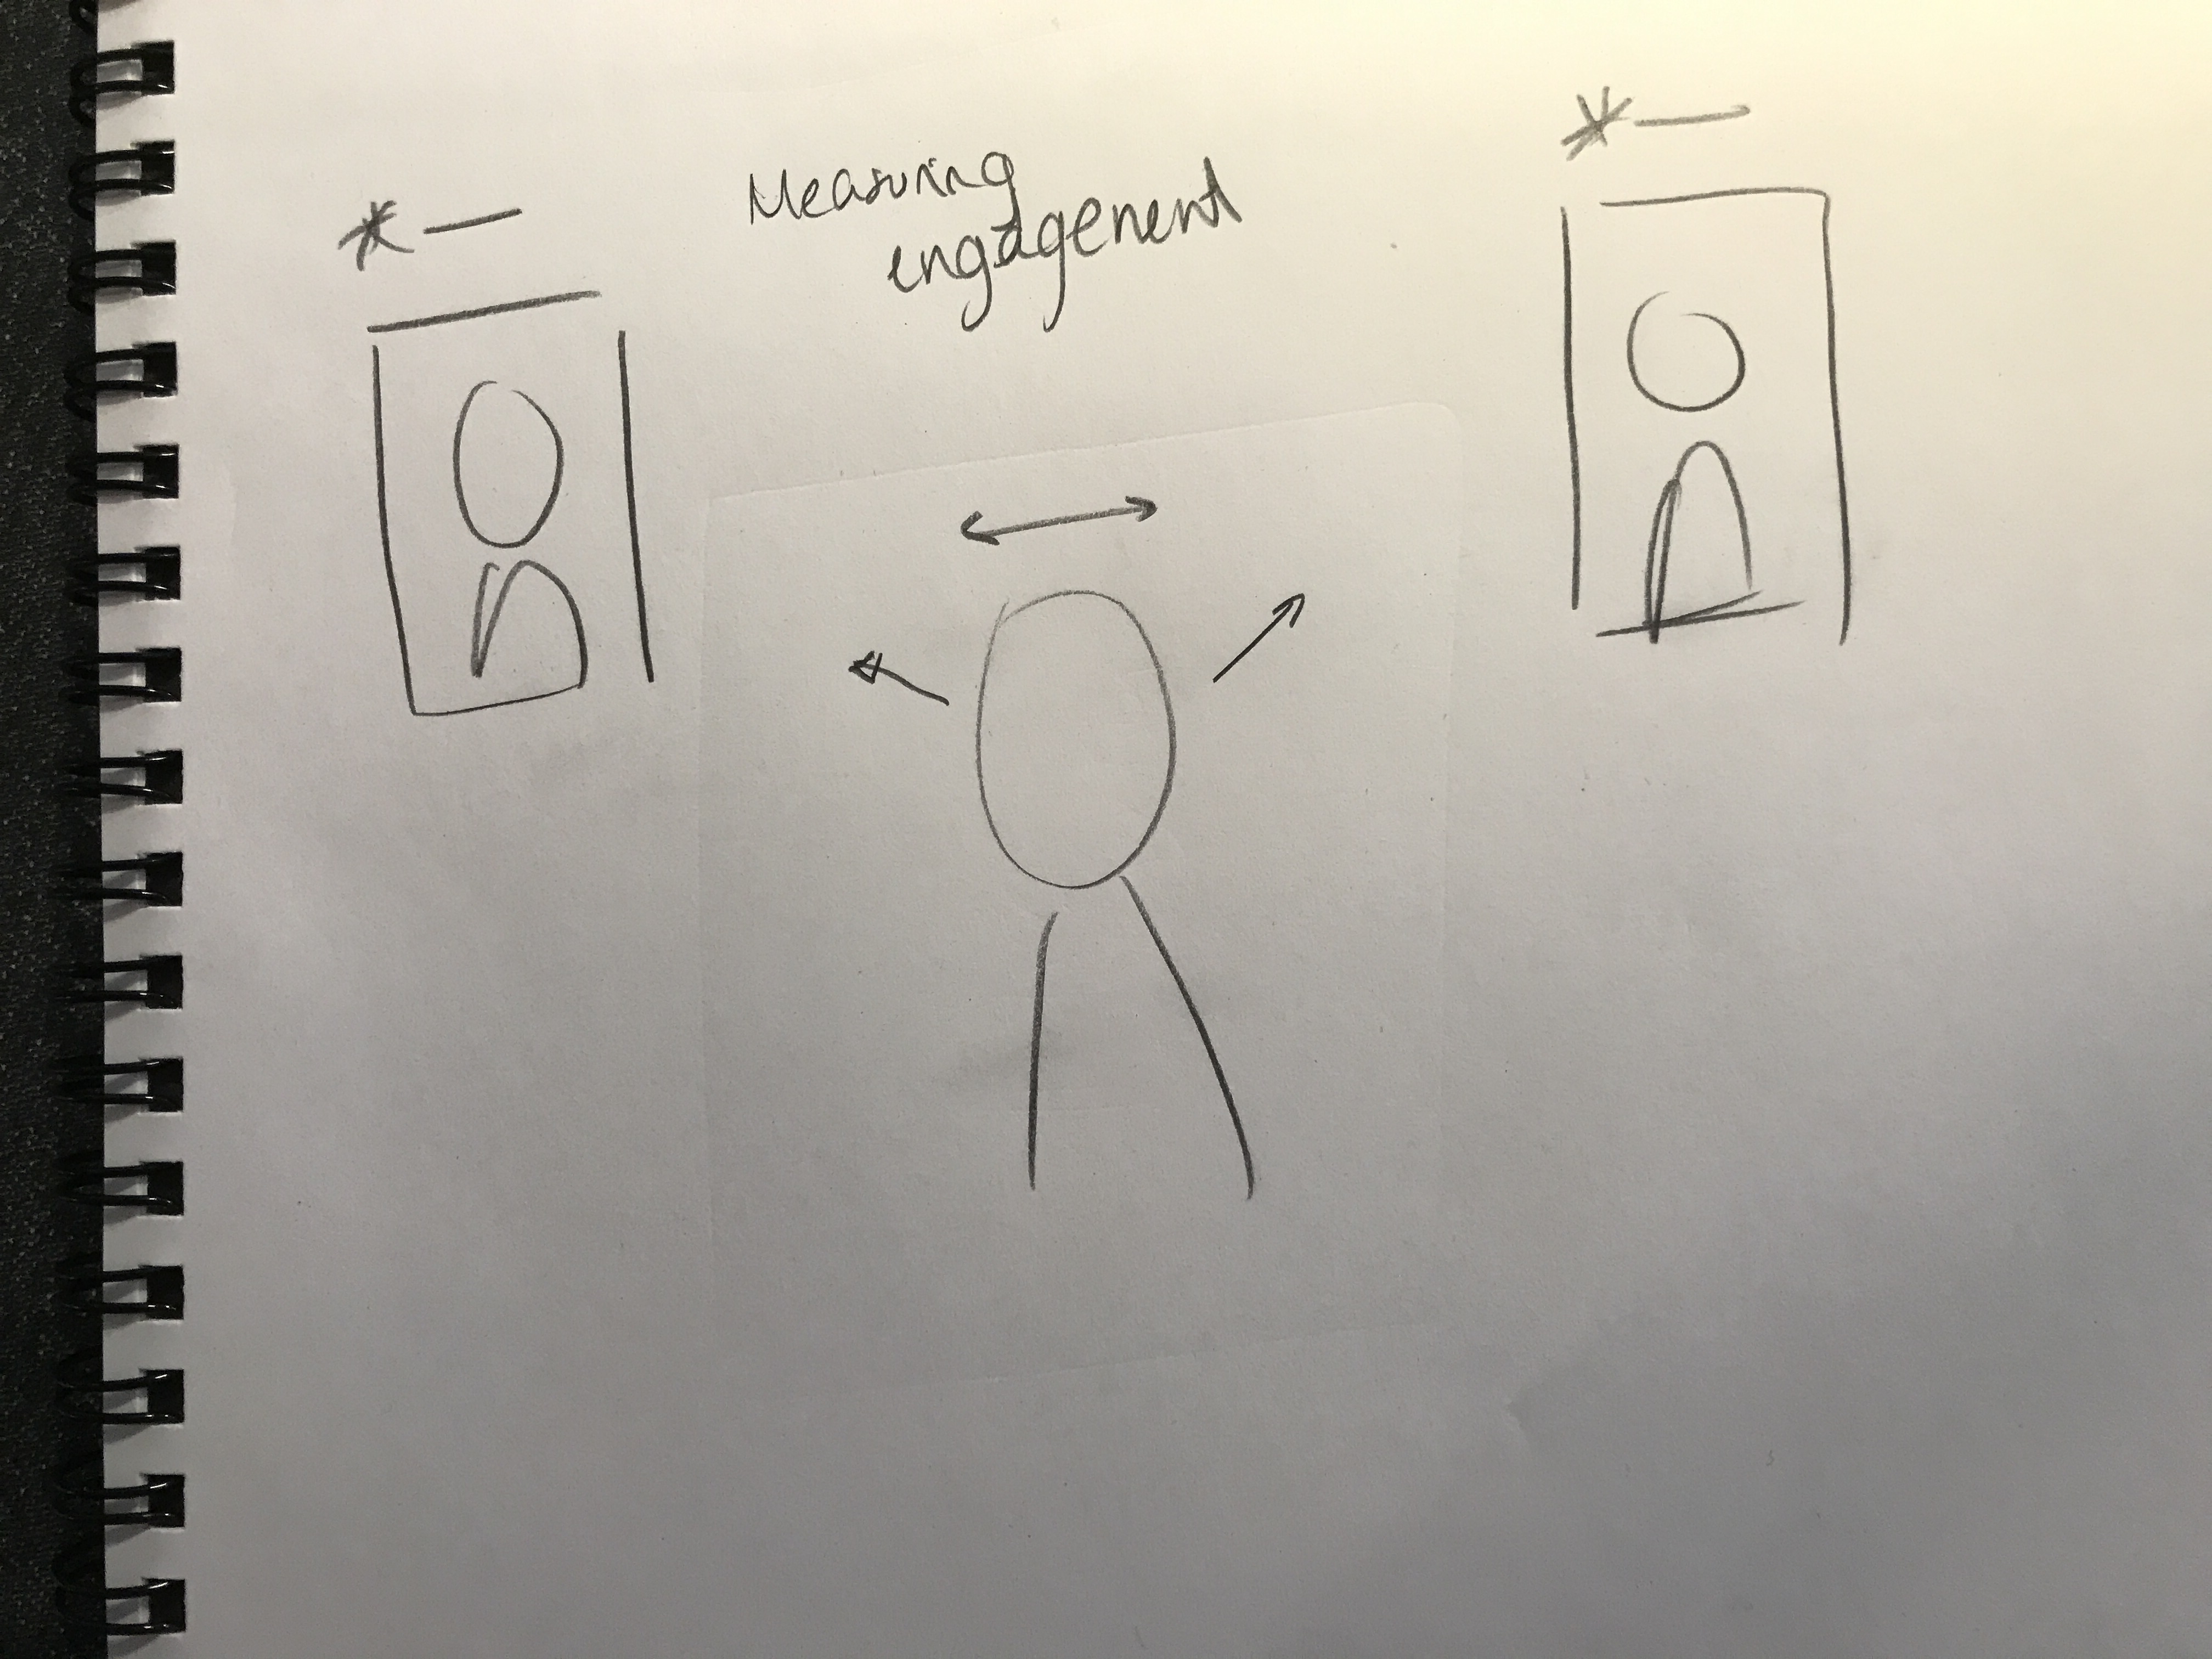 Measuring
engagement